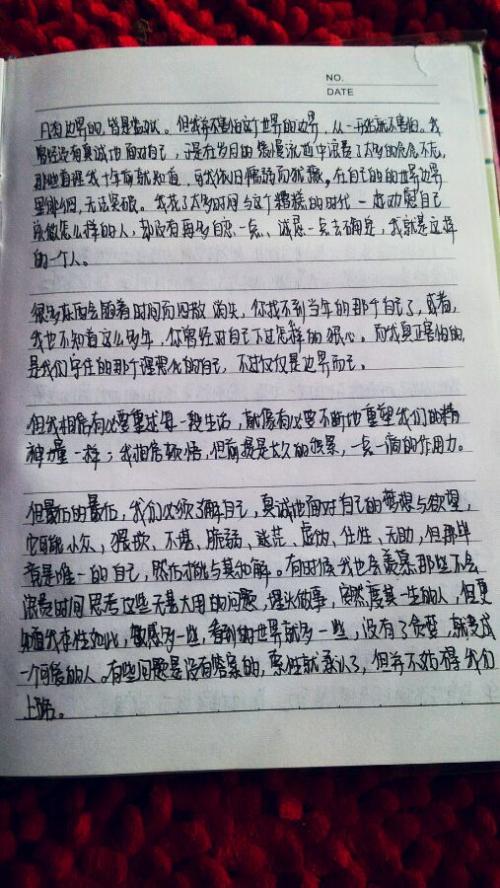 NO.
DATE
凡有边界的，皆是监狱。但我并不害怕这个世界的边界，从一开始就不害怕。我
曾经没有真诚地面对自己，于是在岁月的缓慢流逝中浪费了太多的
那些道理我十年前就知道，可我依旧 而犹豫。在自己的的世界边界
里徘徊，无法突破。我花了太多时间与这个糟糕的时代一起劝慰自己
该做怎么样的人，却没有再多自恋一点、诚恳一点去确定，我就是这样
的一个人。
很多东西会随着时间而四散消失，你找不到当年的那个自己了，或者，
我也不知道这么多年，你曾经对自己下过怎样的狠心。而我真正害怕的，
是我们守住的那个理想化的自己，不过仅仅是边界而已。
但我相信有必要重述每一段生活，就像有必要不断地重塑我们的精
神力量一样；我相信顿悟，但前提是太久的积累，一点一滴的作用力。
但最后的最后，我们必须了解自己，真诚地面对自己的梦想与欲望，
它可能小众、猥琐、不堪、脆弱、迷茫、虚伪、任性、无助，但那毕
竟是唯一的自己，然后才能与其和解。有时候我也会羡慕那些不会
浪费时间思考这些无甚大用的问题，埋头做事，安然度其一生的人，但更
知道我本性如此，敏感多一些，看到的世界就多一些，没有了贪婪，就变成
一个可爱的人。有些问题是没有答案的，索性就承认了，但并不妨碍我们
上路。